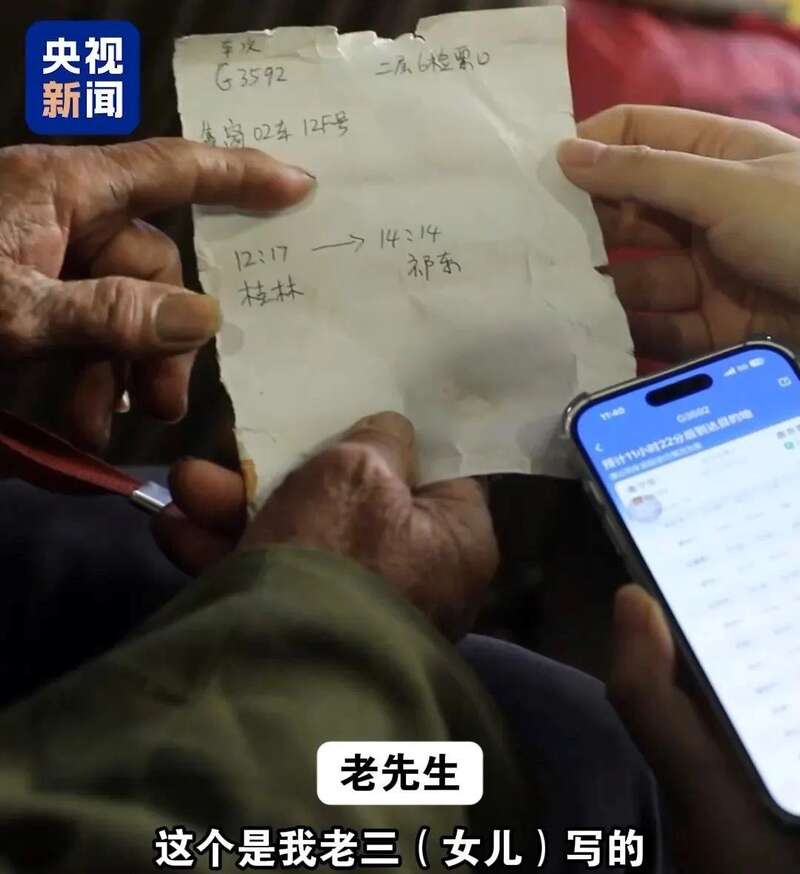 央视
新闻
车次
G3592
二层6检票口
02车12F号
12:17 → 14:14
桂林
祁东
11:40
G3592
预计11小时22分后到达目的地
老先生
这个是我老三（女儿）写的